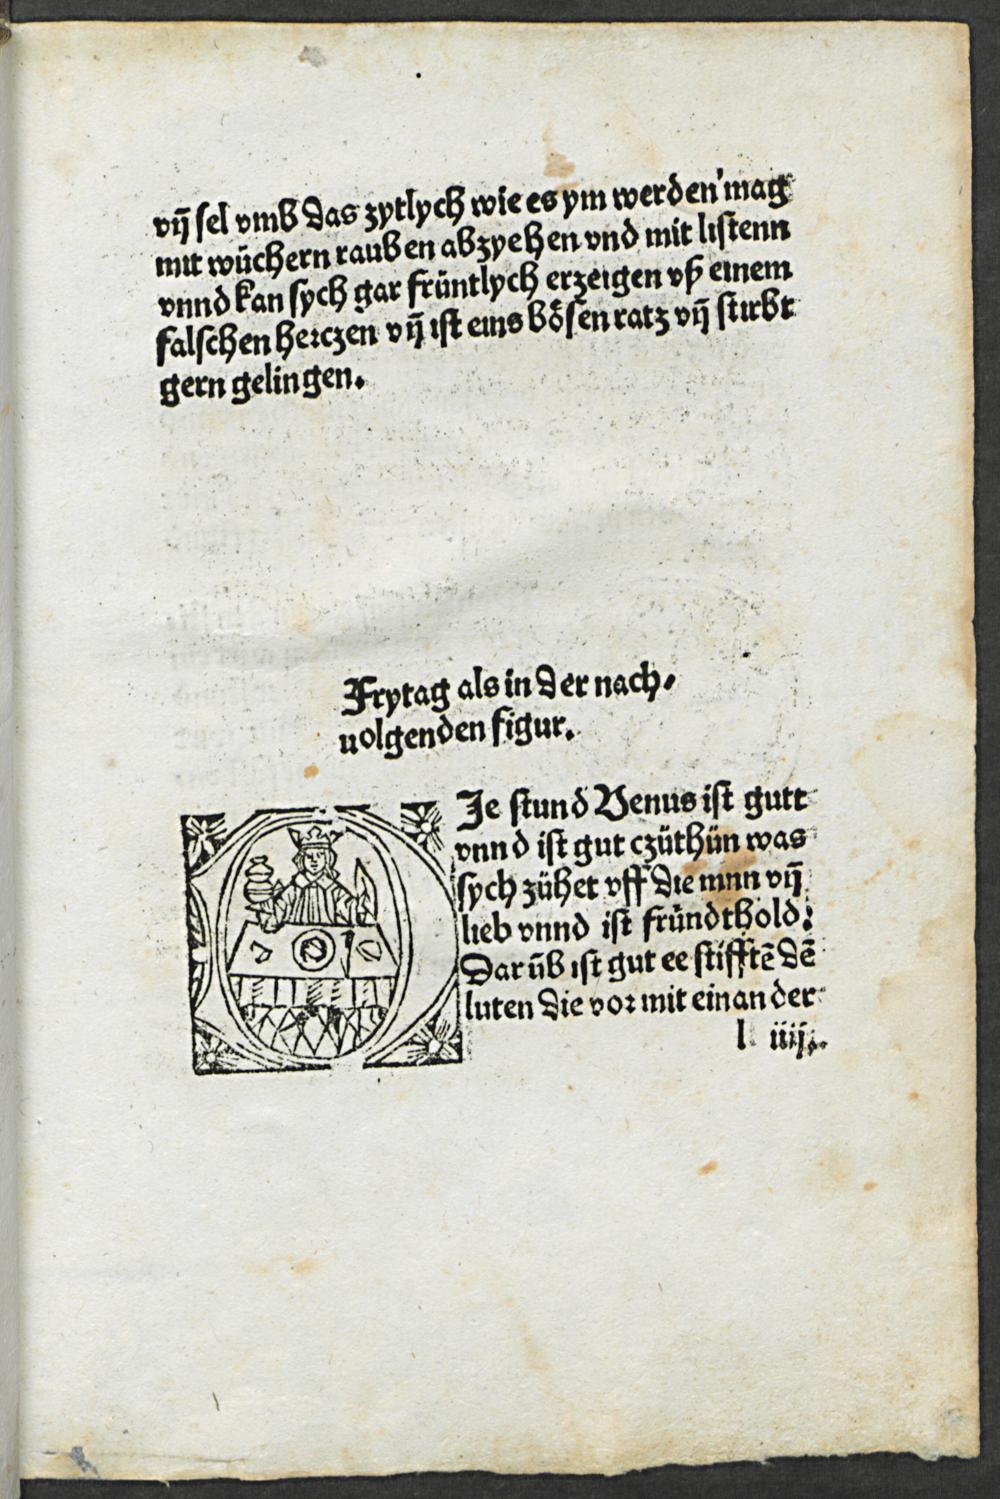 vn̄ sel vmb das zytlych wie es ym werden mag
mit wůchern rauben abzyehen vnd mit listenn
vnnd kan sych gar früntlych erzeigen vß einem
falschen herczen vn̄ ist eins bösen ratz vn̄ stirbt
gern gelingen.
Frytag als in der nach-
uolgenden figur.
Je stund Venus ist gutt
vnnd ist gut czüthün was
sych zühet vff die minn vn̄
lieb vnnd ist fründthold:
Dar ūb ist gut ee stifftē dē
luten die vor mit einander
l iiij.